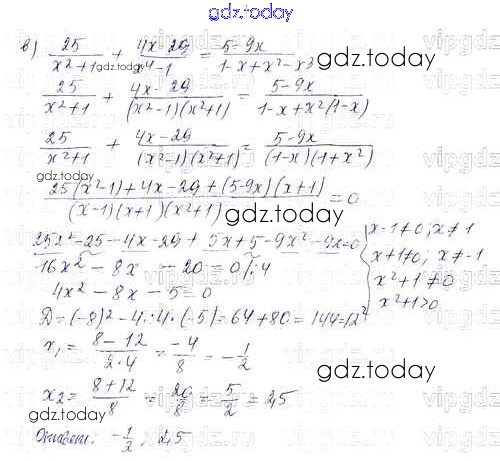 gdz.today
в) 25/(x²+1) + (4x-29)/(x⁴-1) = (5-9x)/(1-x+x²-x³)
gdz.today
25/(x²+1) + (4x-29)/((x²-1)(x²+1)) = (5-9x)/(1-x+x²(1-x))
25/(x²+1) + (4x-29)/((x²-1)(x²+1)) = (5-9x)/((1-x)(1+x²))
(25(x²-1)+4x-29+(5-9x)(x+1))/((x-1)(x+1)(x²+1)) = 0
gdz.today
25x²-25-4x-29+5x+5-9x²-9x=0
x-1≠0; x≠1
x+1≠0; x≠-1
x²+1≠0
x²+1>0
16x² - 8x - 20 = 0 /:4
4x² - 8x - 5 = 0
D=(-8)²-4·4·(-5)=64+80=144=12²
x₁ = (8-12)/(2·4) = -4/8 = -1/2
gdz.today
x₂ = (8+12)/8 = 20/8 = 5/2 = 2,5
gdz.today
Ответ: -1/2; 2,5